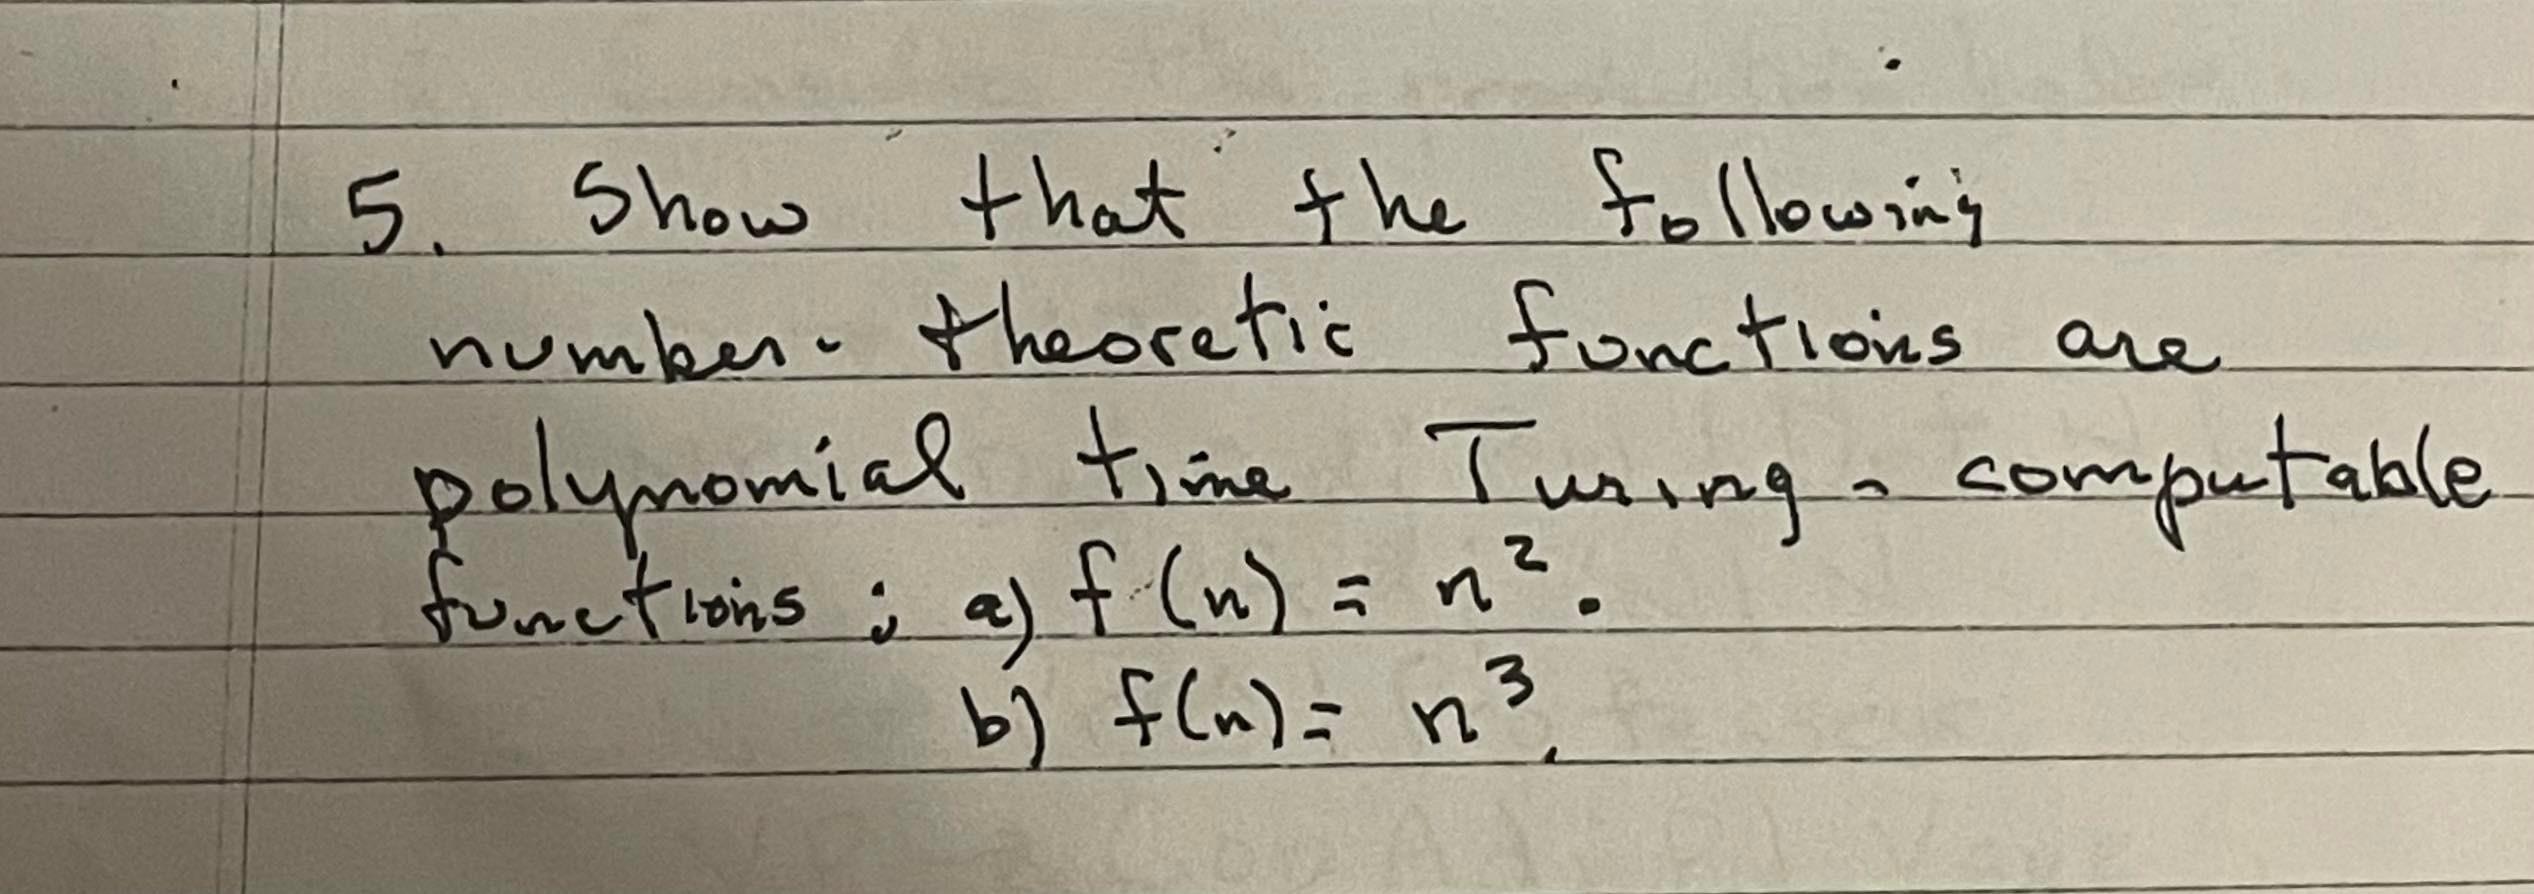 5. Show that the following
number-theoretic functions are
polynomial time Turing-computable
functions: a) f(n) = n².
b) f(n) = n³.